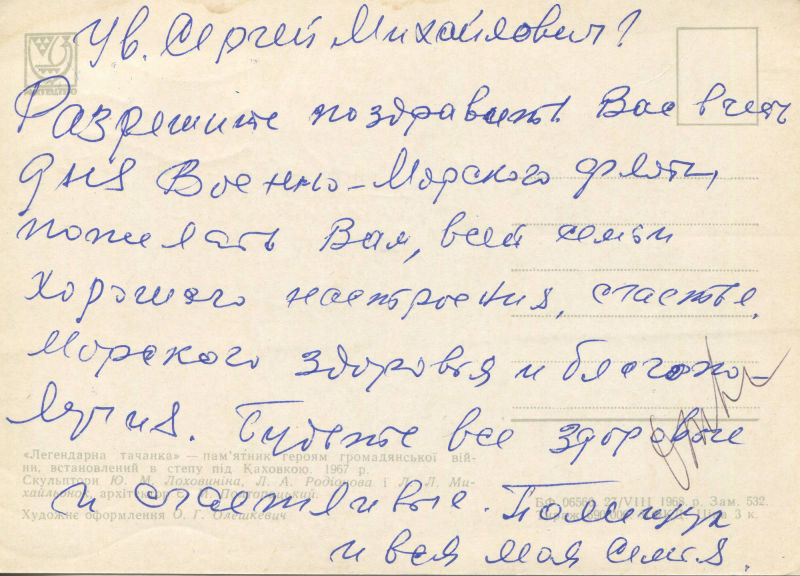 Ув. Сергей Михайлович!
Разрешите поздравить Вас в честь
дня Военно-Морского флота,
пожелать Вам, всей семьи
хорошего настроения, счастье,
морского здоровья и благопо-
лучия. Будьте все здоровые
и счастливые. Полищук
и вся моя семья.
МИСТЕЦТВО
«Легендарна тачанка» — пам'ятник героям громадянської вій-
ни, встановлений в степу під Каховкою. 1967 р.
Скульптори Ю. М. Лоховиніна, Л. А. Родіонова і Л. Л. Ми-
хайльонок, архітектор Є. М. Полторацький.
Художнє оформлення О. Г. Олешкевич
БФ 06560. 27/VIII 1968 р. Зам. 532.
Ціна 3 к.